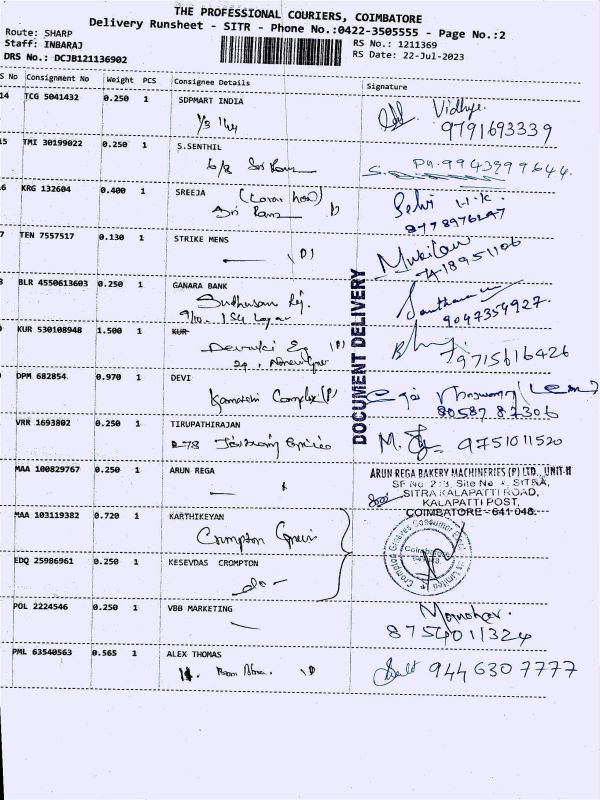 THE PROFESSIONAL COURIERS, COIMBATORE
Delivery Runsheet - SITR - Phone No.:0422-3505555 - Page No.:2
Route: SHARP
Staff: INBARAJ
DRS No.: DCJB121136902
RS No.: 1211369
RS Date: 22-Jul-2023
S No Consignment No Weight PCS Consignee Details Signature
14 TCG 5041432 0.250 1 SDPMART INDIA
Vidhya.
9791693339
5 TMI 30199022 0.250 1 S.SENTHIL
6/8 Sri Ram
Ph. 9943999644.
6 KRG 132604 0.400 1 SREEJA
Sri Ram
Selvi
8778976247
7 TEN 7557517 0.130 1 STRIKE MENS
Mukilan
7418951106
BLR 4550613603 0.250 1 GANARA BANK
9047354927.
KUR 530108948 1.500 1 KUR
79715616426
DPM 682854 0.970 1 DEVI
Kamatchi Complex (P)
80587 87306
VRR 1693802 0.250 1 TIRUPATHIRAJAN
9751011520
DOCUMENT DELIVERY
MAA 100829767 0.250 1 ARUN REGA
ARUN REGA BAKERY MACHINERIES (P) LTD., UNIT-II
SF No 213, Site No, SITRA,
SITRA KALAPATTI ROAD,
KALAPATTI POST,
COIMBATORE - 641 048.
MAA 103119382 0.720 1 KARTHIKEYAN
Crompton Greaves
Crompton Greaves Consumer Limited
Coimbatore
EDQ 25986961 0.250 1 KESEVDAS CROMPTON
-do-
POL 2224546 0.250 1 VBB MARKETING
Manohar.
8754011324
PML 63540563 0.565 1 ALEX THOMAS
944 6307777